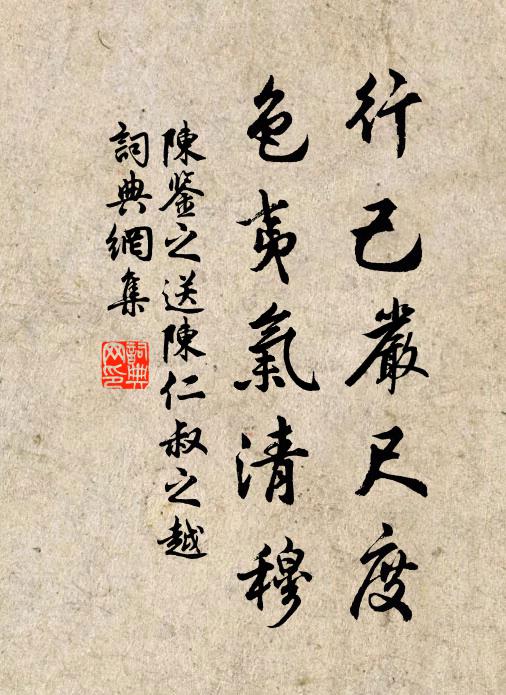 行己嚴尺度
色夷氣清穆
陳鉴之送陳仁叔之越
詞典網集
詞典网印